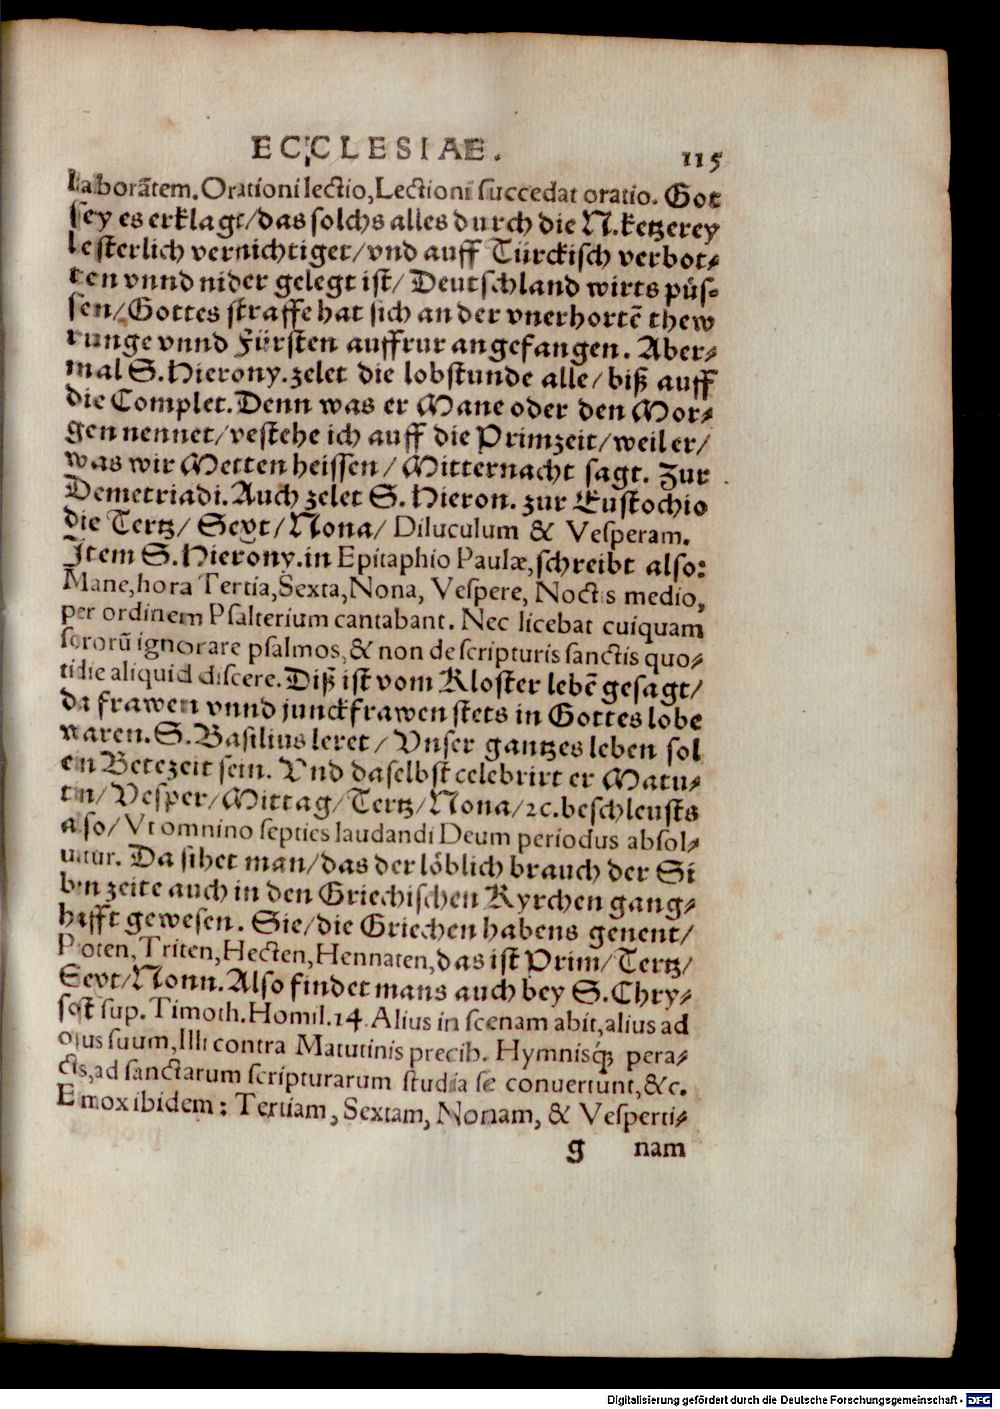 ECCLESIAE. 115
laborātem. Orationi lectio, Lectioni succedat oratio. Got
sey es erklagt/ das solchs alles durch die N. ketzerey
lesterlich vernichtiget/ vnd auff Türckisch verbot-
ten vnnd nider gelegt ist/ Deutschland wirts püs-
sen/ Gottes straffe hat sich an der vnerhortē thew
runge vnnd Fürsten auffrur angefangen. Aber-
mal S. Hierony. zelet die lobstunde alle/ biß auff
die Complet. Denn was er Mane oder den Mor-
gen nennet/ vestehe ich auff die Primzeit/ weil er/
was wir Metten heissen/ Mitternacht sagt. Zur
Demetriadi. Auch zelet S. Hieron. zur Eustochio
die Tertz/ Sext/ Nona/ Diluculum & Vesperam.
Item S. Hierony. in Epitaphio Paulæ, schreibt also:
Mane, hora Tertia, Sexta, Nona, Vespere, Noctis medio,
per ordinem Psalterium cantabant. Nec licebat cuiquam
sororū ignorare psalmos, & non de scripturis sanctis quo-
tidie aliquid discere. Diß ist vom Kloster lebē gesagt/
da frawen vnnd junckfrawen stets in Gottes lobe
waren. S. Basilius leret/ Vnser gantzes leben sol
ein Betezeit sein. Vnd daselbst celebrirt er Matu-
tin/ Vesper/ Mittag/ Tertz/ Nona/ ꝛc. beschleusts
also/ Vt omnino septies laudandi Deum periodus absol-
uatur. Da sihet man/ das der löblich brauch der Si
ben zeite auch in den Griechischen Kyrchen gang-
hafft gewesen. Sie/ die Griechen habens genent/
Proten, Triten, Hecten, Hennaten, das ist Prim/ Tertz/
Sext/ Nonn. Also findet mans auch bey S. Chry-
sost sup. Timoth. Homil. 14. Alius in scenam abit, alius ad
opus suum, Illi contra Matutinis precib. Hymnisq́; pera-
ctis, ad sanctarum scripturarum studia se conuertunt, &c.
Et mox ibidem: Tertiam, Sextam, Nonam, & Vesperti-
g nam
Digitalisierung gefördert durch die Deutsche Forschungsgemeinschaft - DFG